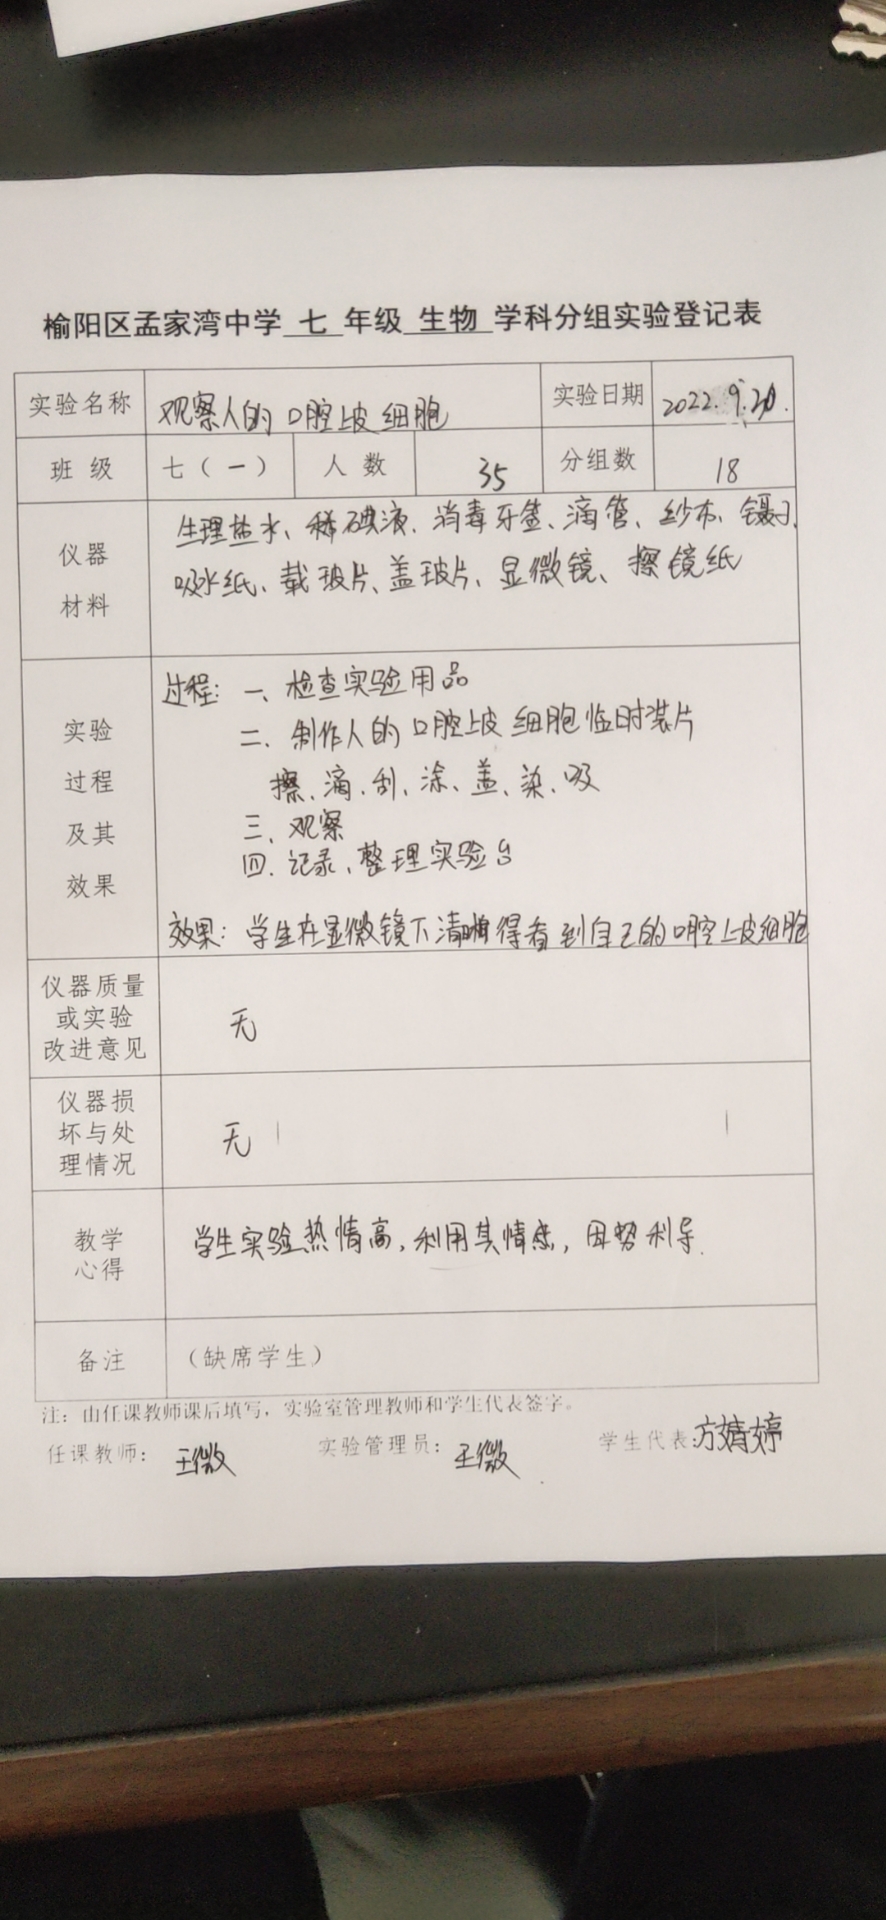 榆阳区孟家湾中学 七 年级 生物 学科分组实验登记表
实验名称 观察人的口腔上皮细胞 实验日期 2022.9.20.
班 级 七（一） 人 数 35 分组数 18
仪器
材料
生理盐水、稀碘液、消毒牙签、滴管、纱布、镊子、
吸水纸、载玻片、盖玻片、显微镜、擦镜纸
实验
过程
及其
效果
过程：一、检查实验用品
二、制作人的口腔上皮细胞临时装片
擦、滴、刮、涂、盖、染、吸
三、观察
四、记录、整理实验台
效果：学生在显微镜下清晰得看到自己的口腔上皮细胞
仪器质量
或实验
改进意见
无
仪器损
坏与处
理情况
无
教学
心得
学生实验热情高，利用其情感，因势利导.
备注 （缺席学生）
注：由任课教师课后填写，实验室管理教师和学生代表签字。
任课教师：王微 实验管理员：王微 学生代表：方婧婷